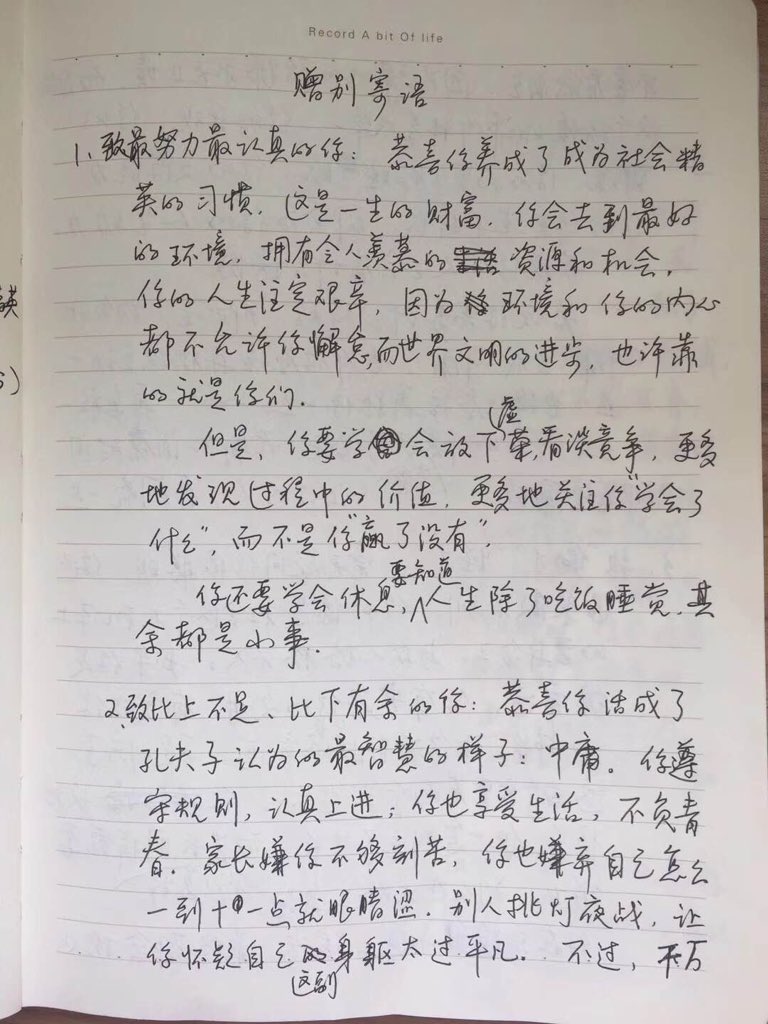 Record A bit Of life
赠别寄语
1、致最努力最认真的你：恭喜你养成了成为社会精
英的习惯，这是一生的财富，你会去到最好
的环境，拥有令人羡慕的资源和机会，
你的人生注定艰辛，因为环境和你的内心
都不允许你懈怠，而世界文明的进步，也许靠
的就是你们。
但是，你要学会放下虚荣，看淡竞争，更多
地发现过程中的价值，更多地关注你“学会了
什么”，而不是你“赢了没有”。
你还要学会休息，要知道人生除了吃饭睡觉，其
余都是小事。
2、致比上不足、比下有余的你：恭喜你活成了
孔夫子认为的最智慧的样子：中庸。你遵
守规则，认真上进；你也享受生活，不负青
春。家长嫌你不够刻苦，你也嫌弃自己怎么
一到十一点就眼睛涩。别人挑灯夜战，让
你怀疑自己这副身躯太过平凡。不过，千万
英